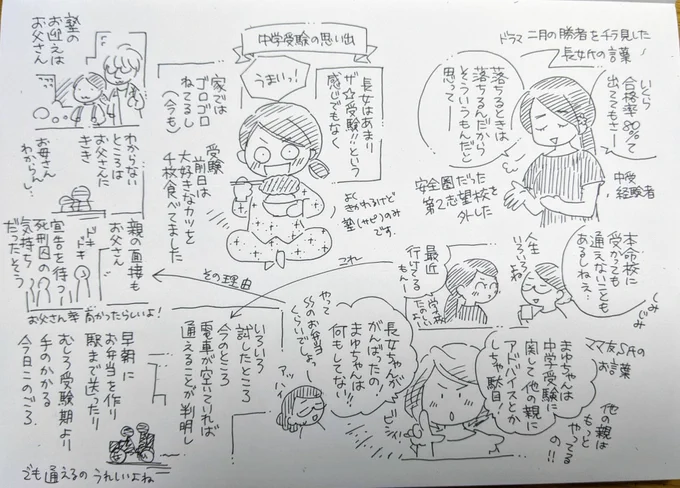 中学受験の思い出
ドラマ二月の勝者をチラ見した
長女氏の言葉
いくら
合格率80%って
出ててもさー
落ちるときは
落ちるんだから
そういうもんだと
思ってー
中受
経験者
安全圏だった
第2志望校を
外した
本命校に
受かっても
通えないことも
あるしねぇ…
しみ
じみ
人生
いろいろ
よね
最近
行けてる
もんー
学校
たのしい
ママ友S氏の
お言葉
まゆちゃんは
中学受験に
関して他の親に
アドバイスとか
しちゃ駄目!
他の親は
もっと
やってる
の!!
長女ちゃんが
がんばったの、
まゆちゃんは
何もしてない!!
ビシ
やって
お弁当
くらいでしょー
アッ
長女はあまり
ザ☆受験!!という
感じでもなく
うまいっ!
よく
きかれるけど
塾(サピ)のみ
です。
家では
ゴロゴロ
ねてるし
(今も)
受験
前日は
大好きなカツを
千枚食べてました
これー
その理由
いろいろ
試したところ
今のところ
電車が空いていれば
通えることが判明し
塾の
お迎えは
お父さん
わからない
ところは
お父さんに
きき
お母さん
わからんし…
親の面接も
お父さん
ドキ
ドキ
宣告を待つ
死刑囚の
気持ち
だったとそう
お父さん率高かったらしいよ!
早朝に
お弁当を作り
駅まで送ったり
むしろ受験期より
手のかかる
今日このごろ。
でも通えるのうれしいよね